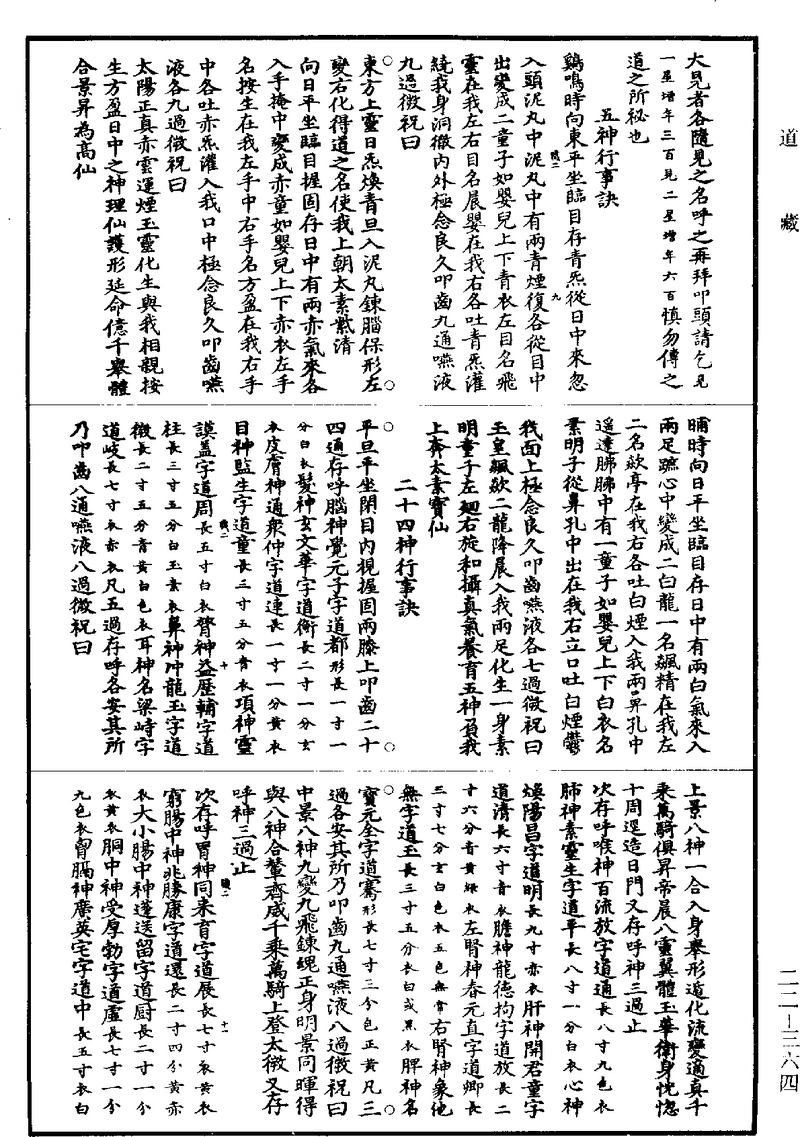 道藏
大見者各隨見之名呼之再拜叩頭請乞見
一星增年三百見二星增年六百慎勿傳之
道之所祕也
五神行事訣
鷄鳴時向東平坐臨目存青炁從日中來忽
入頭泥丸中泥丸中有兩青煙復各從目中
出變成二童子如嬰兒上下青衣左目名飛
靈在我左右目名晨嬰在我右各吐青炁灌
繞我身洞徹内外極念良久叩齒九通嚥液
九過微祝曰
東方上靈日炁煥青旦入泥丸鍊腦保形左
變右化得道之名使我上朝太素紫清
向日平坐臨目握固存日中有兩赤氣來各
入手掩中變成赤童如嬰兒上下赤衣左手
名按生在我左手中右手名方盈在我右手
中各吐赤炁灌入我口中極念良久叩齒嚥
液各九過微祝曰
太陽正真赤雲運煙玉靈化生與我相親按
生方盈日中之神理仙護形延命億千舉體
合景昇為高仙
晡時向日平坐臨目存日中有兩白氣來入
兩足蹠心中變成二白龍一名飆精在我左
二名歘亭在我右各吐白煙入我兩鼻孔中
遥達肺肺中有一童子如嬰兒上下白衣名
素明子從鼻孔中出在我右立口吐白煙鬱
我面上極念良久叩齒嚥液各七過微祝曰
玉皇飆歘二龍降晨入我兩足化生一身素
明童子左廻右旋和攝真氣養育五神負我
上奔太素寶仙
二十四神行事訣
平旦平坐閉目内視握固兩膝上叩齒二十
四通存呼腦神覺元子字道都形長一寸一
分白衣髮神玄文華字道衡長二寸一分玄
衣皮膚神通衆仲字道連長一寸一分黄衣
目神監生字道童長三寸五分青衣項神靈
謨盖字道周長五寸白衣膂神益歷輔字道
柱長三寸五分白玉素衣鼻神冲龍玉字道
微長二寸五分青黄白色衣耳神名梁峙字
道岐長七寸衣赤衣凡五過存呼各安其所
乃叩齒八通嚥液八過微祝曰
上景八神一合入身舉形遁化流變適真千
乘萬騎俱昇帝晨八靈翼體玉華衛身恍惚
十周逕造日門又存呼神三過止
次存呼喉神百流放字道通長八寸九色衣
肺神素靈生字道平長八寸一分白衣心神
煥陽昌字道明長九寸赤衣肝神開君童字
道清長六寸青衣膽神龍德拘字道放長二
寸六分青黄緑衣左腎神春元直字道卿長
三寸七分玄白色衣五色無常右腎神象他
無字道玉長三寸五分衣白或黑衣脾神名
寶元全字道騫形長七寸三分色正黄凡三
過各安其所乃叩齒九通嚥液八過微祝曰
中景八神九變九飛鍊魂正身明景同暉得
與八神合輦齊威千乘萬騎上登太微又存
呼神三過止
次存呼胃神同來育字道展長七寸衣黄衣
窮腸中神兆滕康字道還長二寸四分黄赤
衣大小腸中神蓬送留字道厨長二寸一分
衣黄衣胴中神受厚勃字道虛長七寸一分
九色衣胷膈神廣英宅字道中長五寸衣白
二二—三六四